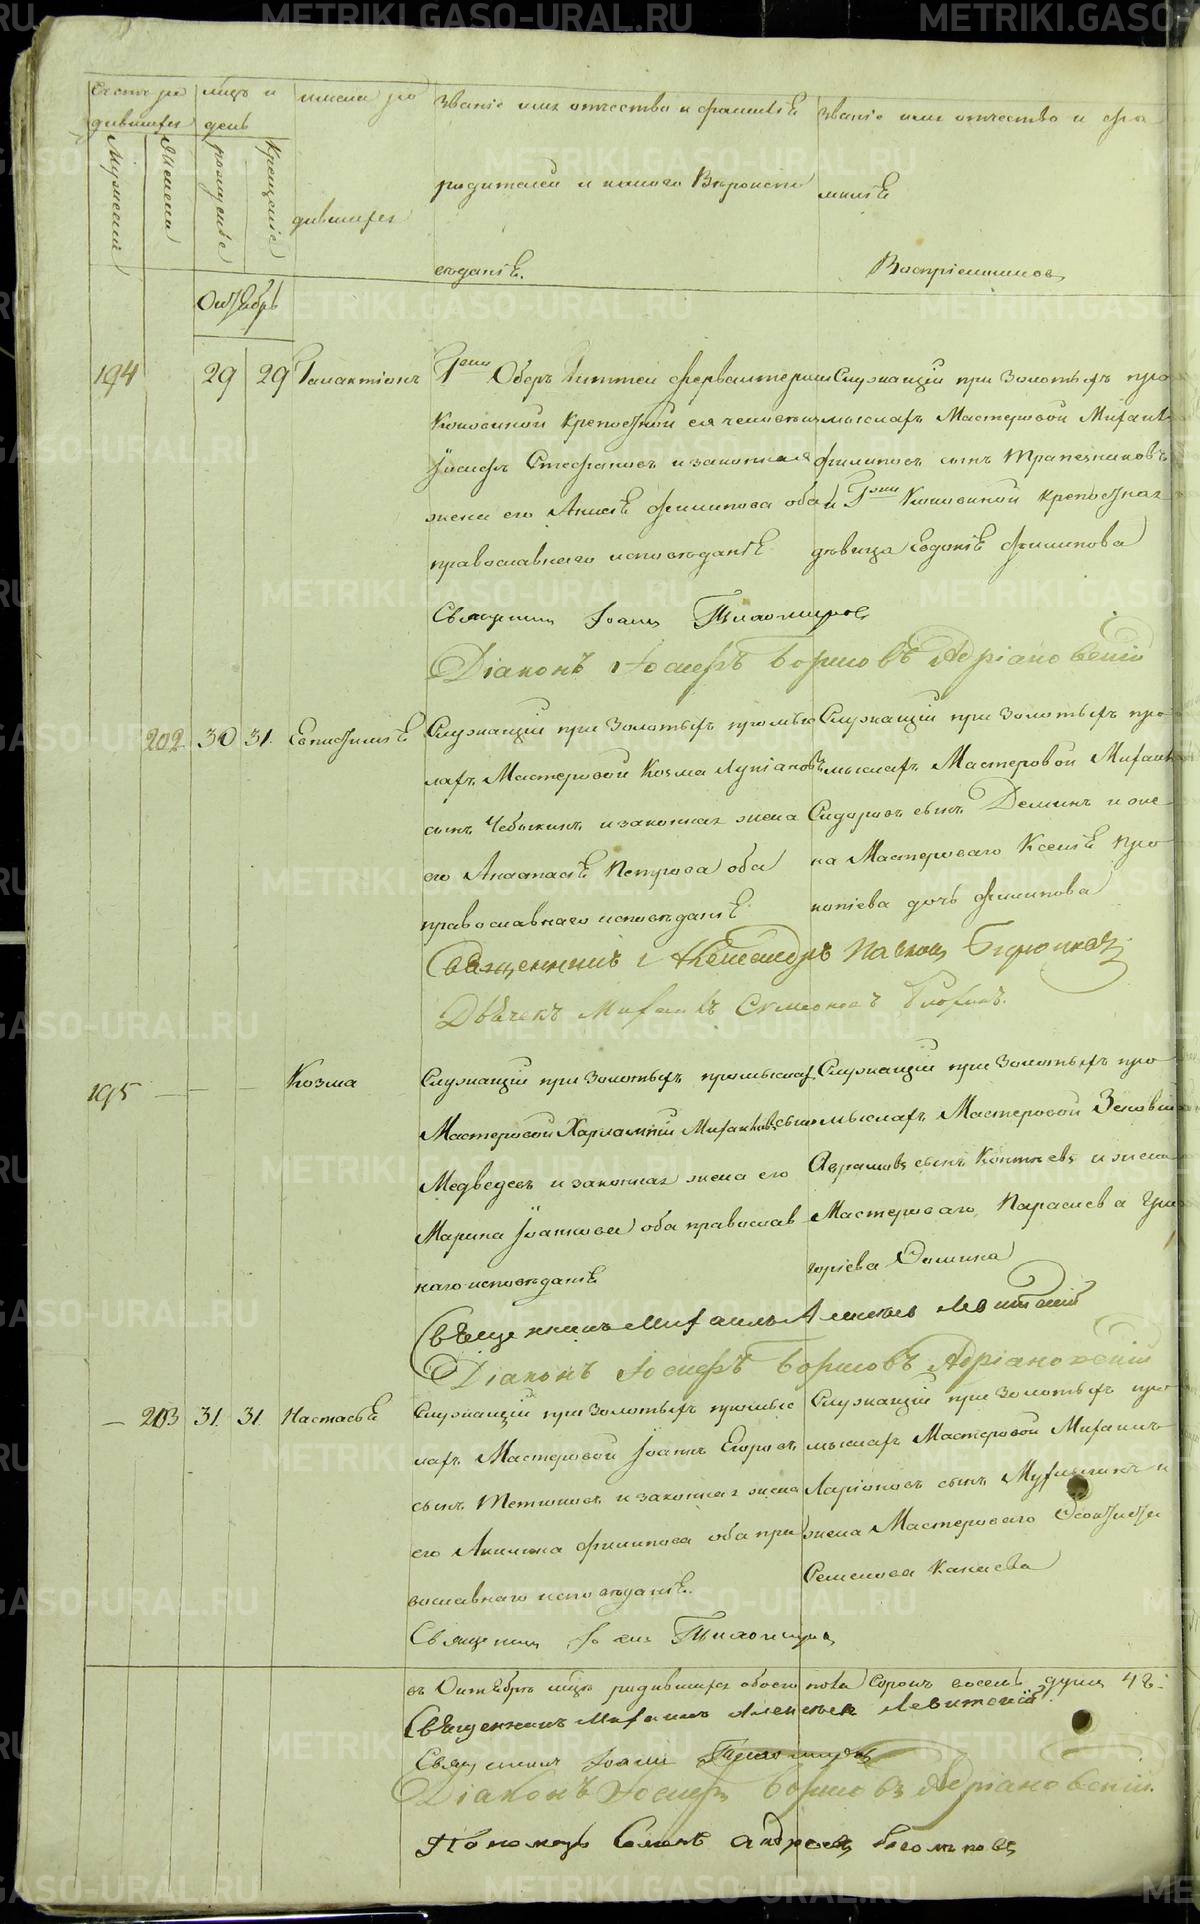 Счетъ ро
дившихся
мцъ и
день
имена ро
дившихся
Мужескій
Женска
рожденіе
Крещеніе
Званіе имя отчество и фамилія
родителей и какого Вѣроиспо
вѣданія.
Званіе имя отчество и фа
милія
Воспріемников
Октябрь
194 29 29 Галактіонъ
Гжи Оберъ фервалтерши
Кокосиной крепостной ея человекъ
Іосифъ Стефановъ и законная
жена его Анисія Филипова оба
православнаго исповѣданія
Служащій при Золотыхъ про
мыслахъ Мастеровой Михаилъ
Филиповъ сынъ Трапезниковъ
и Гжи Кокосиной крепостная
дѣвица Евдокія Филипова
Священникъ Іоаннъ Тихомировъ
Діаконъ Іосифъ Борисовъ Адріановскій
202 30 31. Епистимія
Служащій при Золотыхъ промыс
лахъ Мастеровой Козма Лупіановъ
сынъ Чебыкинъ и законная жена
его Анастасія Петрова оба
православнаго исповѣданія
Служащій при Золотыхъ про
мыслахъ Мастеровой Михаилъ
Сидоровъ сынъ Деминъ и же
на Мастероваго Ксенія Про
копіева дочь Филипова
Священникъ Александръ Павловъ Бирюковъ
Дьячекъ Михаилъ Симеоновъ
195 — — — Козма
Служащій при Золотыхъ промыслах
Мастеровой Харлампій Михаиловъ сынъ
Медведевъ и законная жена его
Марина Іоаннова оба православ
наго исповѣданія
Служащій при Золотыхъ про
мыслахъ Мастеровой Зеновій
Аврамовъ сынъ Коптяевъ и жена
Мастероваго, Парасковѣа Гри
горіева Сомина
Священникъ Михаилъ Алексѣевъ Левитскій
Діаконъ Іосифъ Борисовъ Адріановскій
— 203 31. 31. Настасія
Служащій при Золотыхъ промыс
лахъ Мастеровой Іоаннъ Егоровъ
сынъ Тетюковъ и законная жена
его Акилина Филипова оба пра
вославнаго исповѣданія.
Служащій при Золотыхъ про
мыслахъ Мастеровой Михаилъ
Ларіоновъ сынъ Мухлынинъ и
жена Мастероваго Феоктиста
Семенова Канаева
Священникъ Іоаннъ Тихомировъ
въ Октябрѣ мцѣ родившихся обоего пола Сорокъ восемь душъ 48:
Священникъ Михаилъ Алексѣевъ Левитскій
Священникъ Іоаннъ Тихомировъ
Діаконъ Іосифъ Борисовъ Адріановскій.
Пономарь Симеонъ Андреевъ Богомоловъ